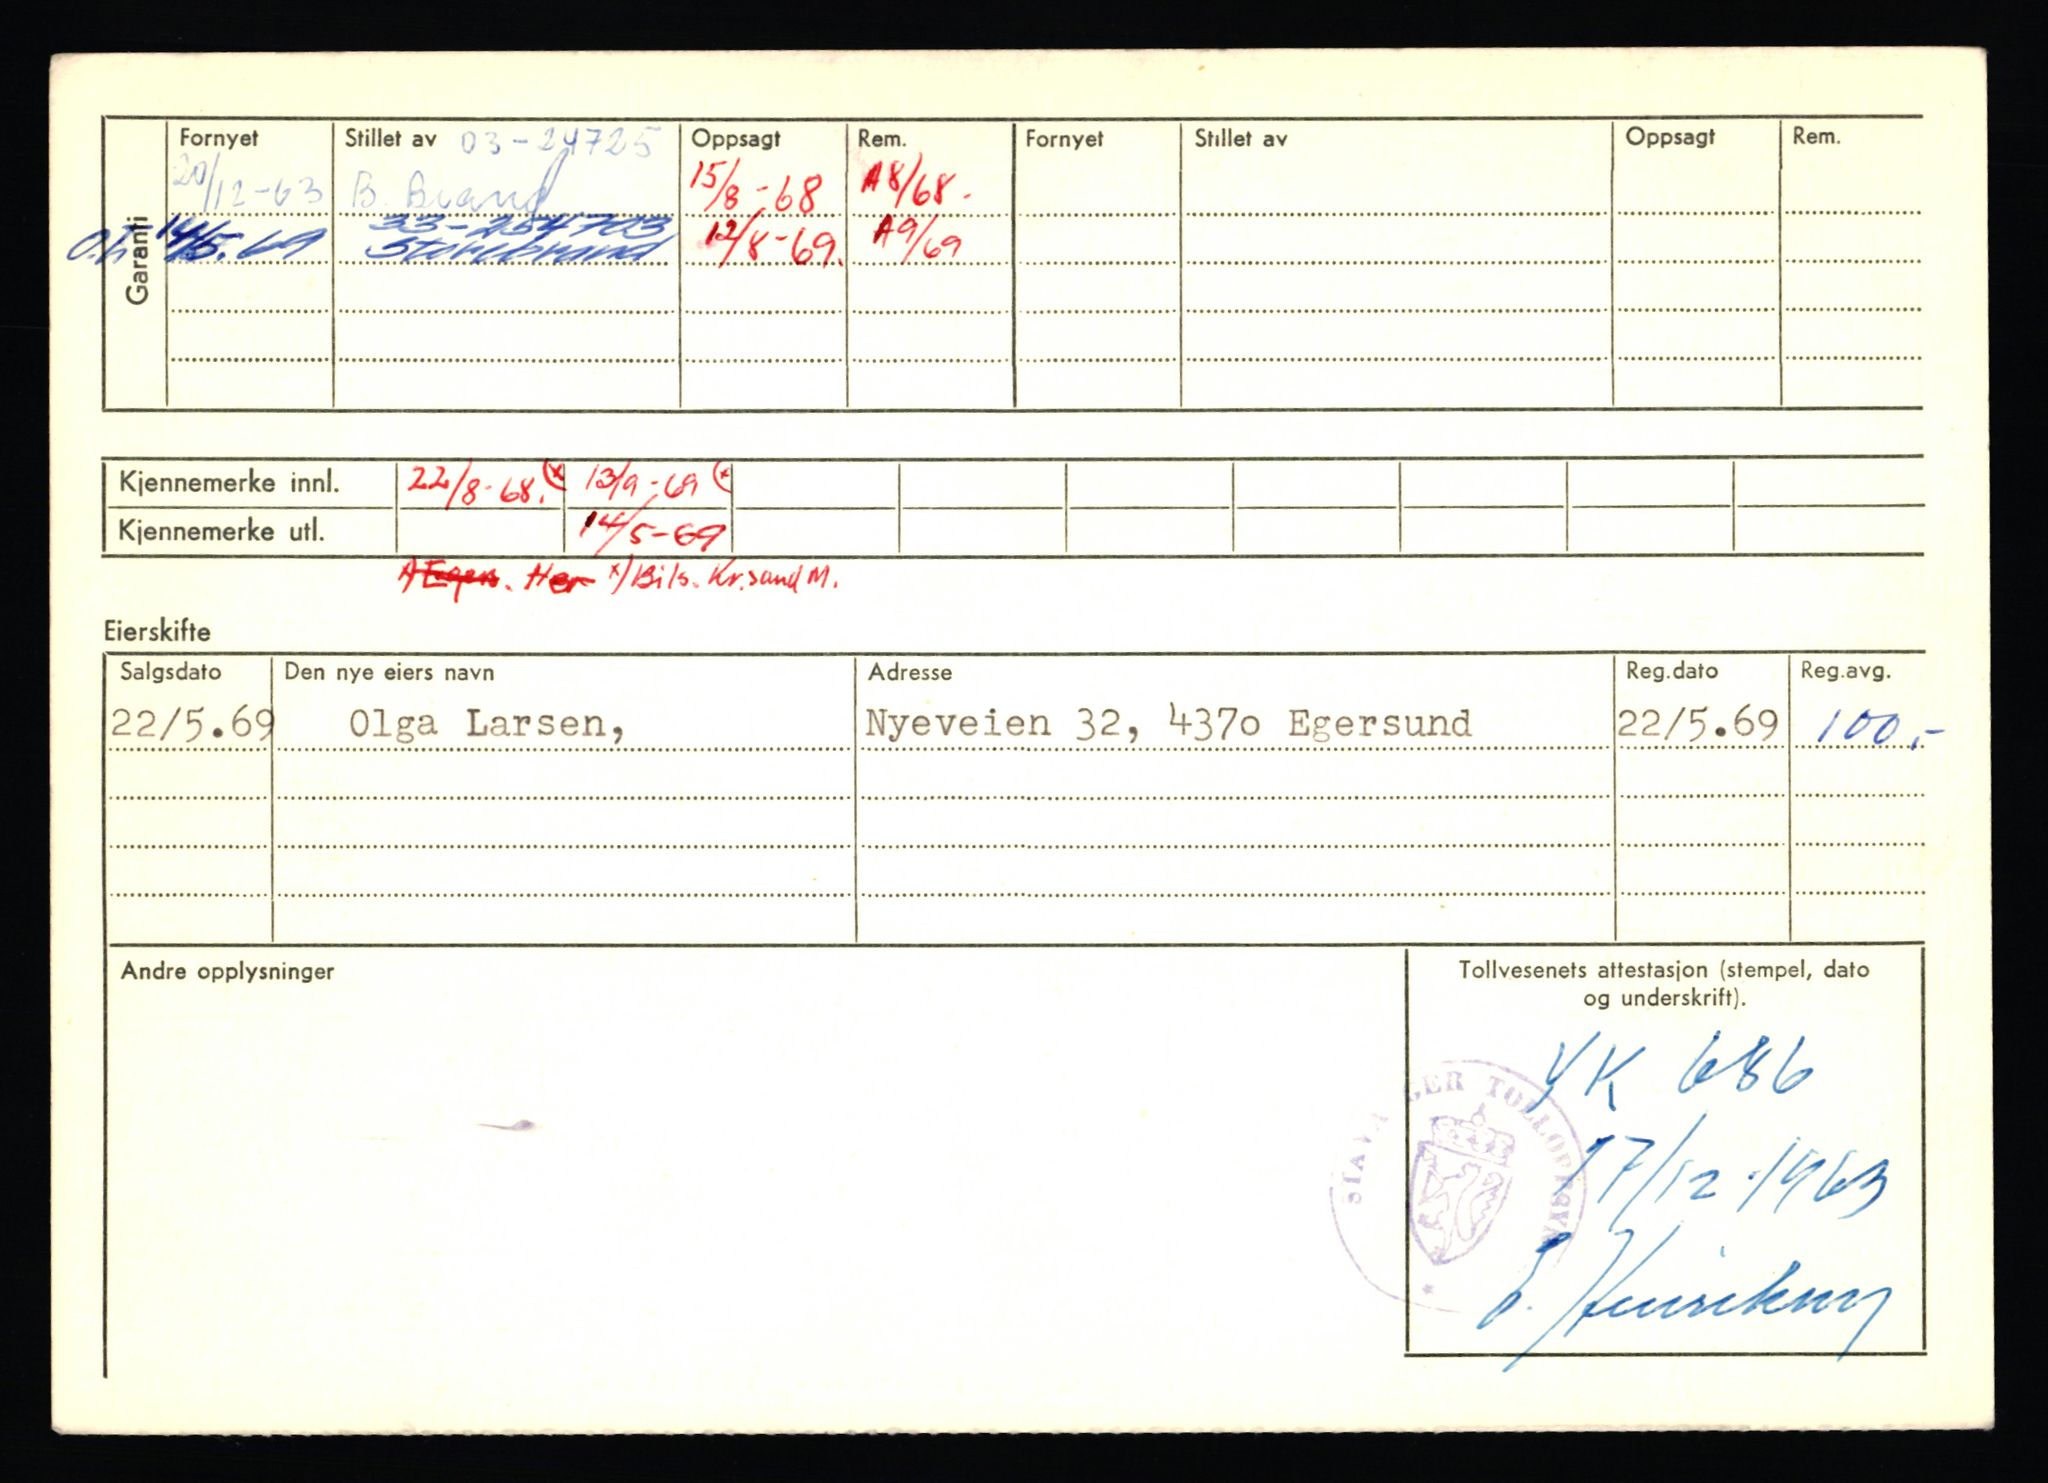 Garanti
Fornyet Stillet av 03-24725 Oppsagt Rem. Fornyet Stillet av Oppsagt Rem.
20/12-63 B. Brand 15/8-68 A8/68.
14/5.69 33-254703 12/8-69. A9/69
Storebrand
Kjennemerke innl. 22/8-68. (x 13/9-69 (x
Kjennemerke utl. 14/5-69
x) Bils. Kr.sand M.
Eierskifte
Salgsdato Den nye eiers navn Adresse Reg.dato Reg.avg.
22/5.69 Olga Larsen, Nyeveien 32, 437o Egersund 22/5.69 100,-
Andre opplysninger Tollvesenets attestasjon (stempel, dato
og underskrift).
YK 686
17/12-1963